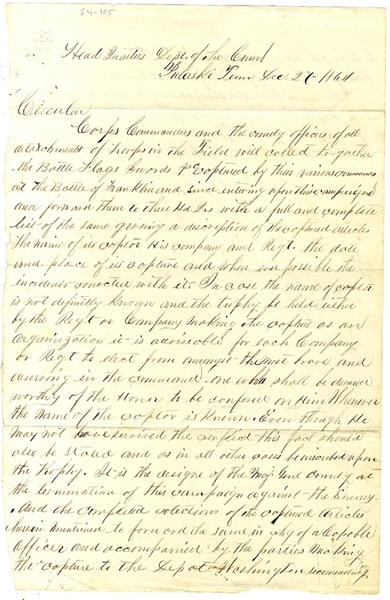 54-105
Head Quarters Dept. of the Cum'l
Pulaski Tenn Dec. 27 1864
Circular
Corps Commanders and the comdg officers of all
detachments of troops in the Field will collect to-gather
the Battle Flags Swords &c captured by their various commands
at the Battle of Franklin and since entering upon this campaign
and forward them to these Hd Qrs with a full and complete
list of the same giving a description of the captured articles
The name of its captor His company and Regt. the date
and place of its capture and when ever possible the
incidents conected with it. In case the name of captor
is not definitly known and the trophy be held either
by the Regt or Company making the capture as an
organization it is adviseable for each Company
or Regt to elect from amongst the most brave and
deserving in the command one who shall be deemed
worthy of the Honor to be confered on Him Whenever
the name of the captor is known. Even though He
may not have survived the conflict this fact should
also be stated and as in all other cases be inscribed upon
the trophy. It is the designs of the Maj. Genl comdg at
the termination of this campaign against the Enemy.
And the complete colections of the captured articles
herein mentioned to forward the same in chg of a capable
officer and accompanied by the parties making
the capture to the Depot Washington